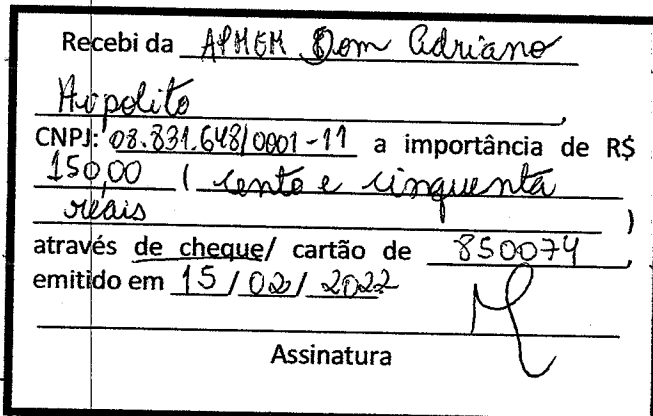 Recebi da APMEM Dom Adriano
Hipolito,
CNPJ: 08.831.648/0001-11 a importância de R$
150,00 ( cento e cinquenta
reais )
através de cheque/ cartão de 850074,
emitido em 15/02/2022
Assinatura